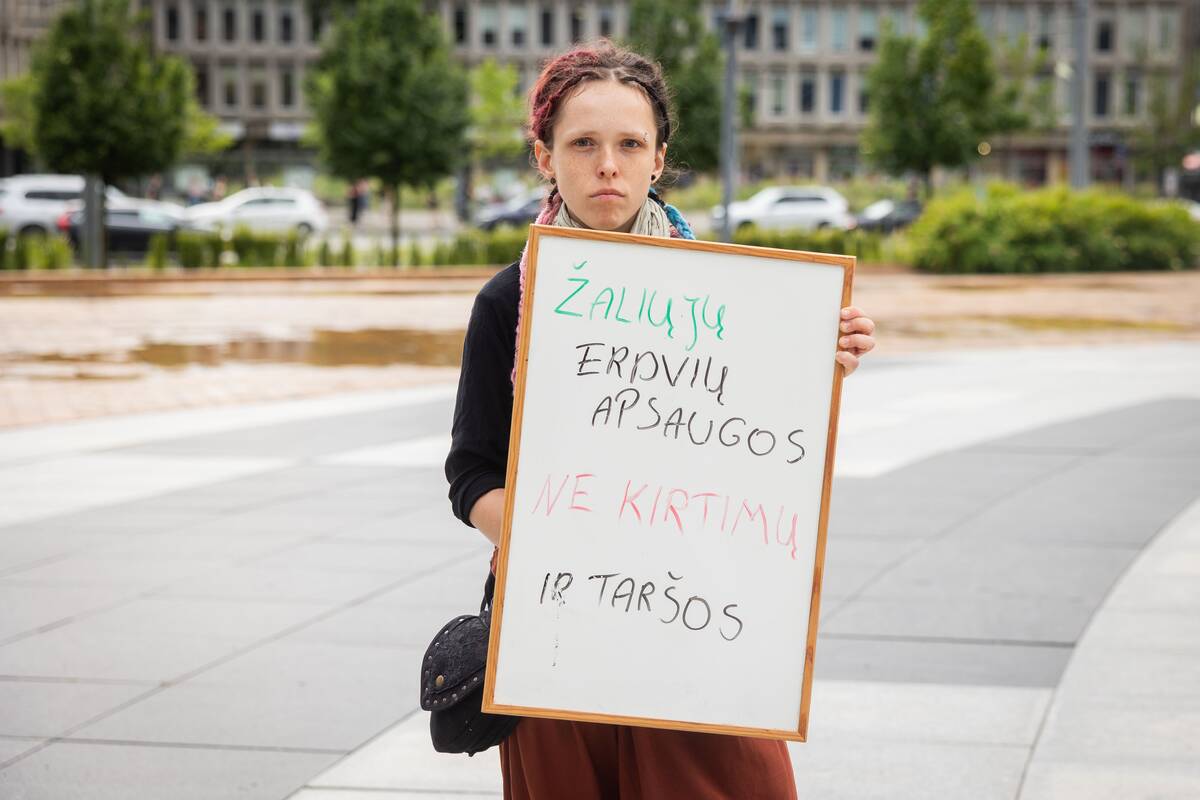 ŽALIŲJŲ
ERDVIŲ
APSAUGOS
NE KIRTIMŲ
IR TARŠOS